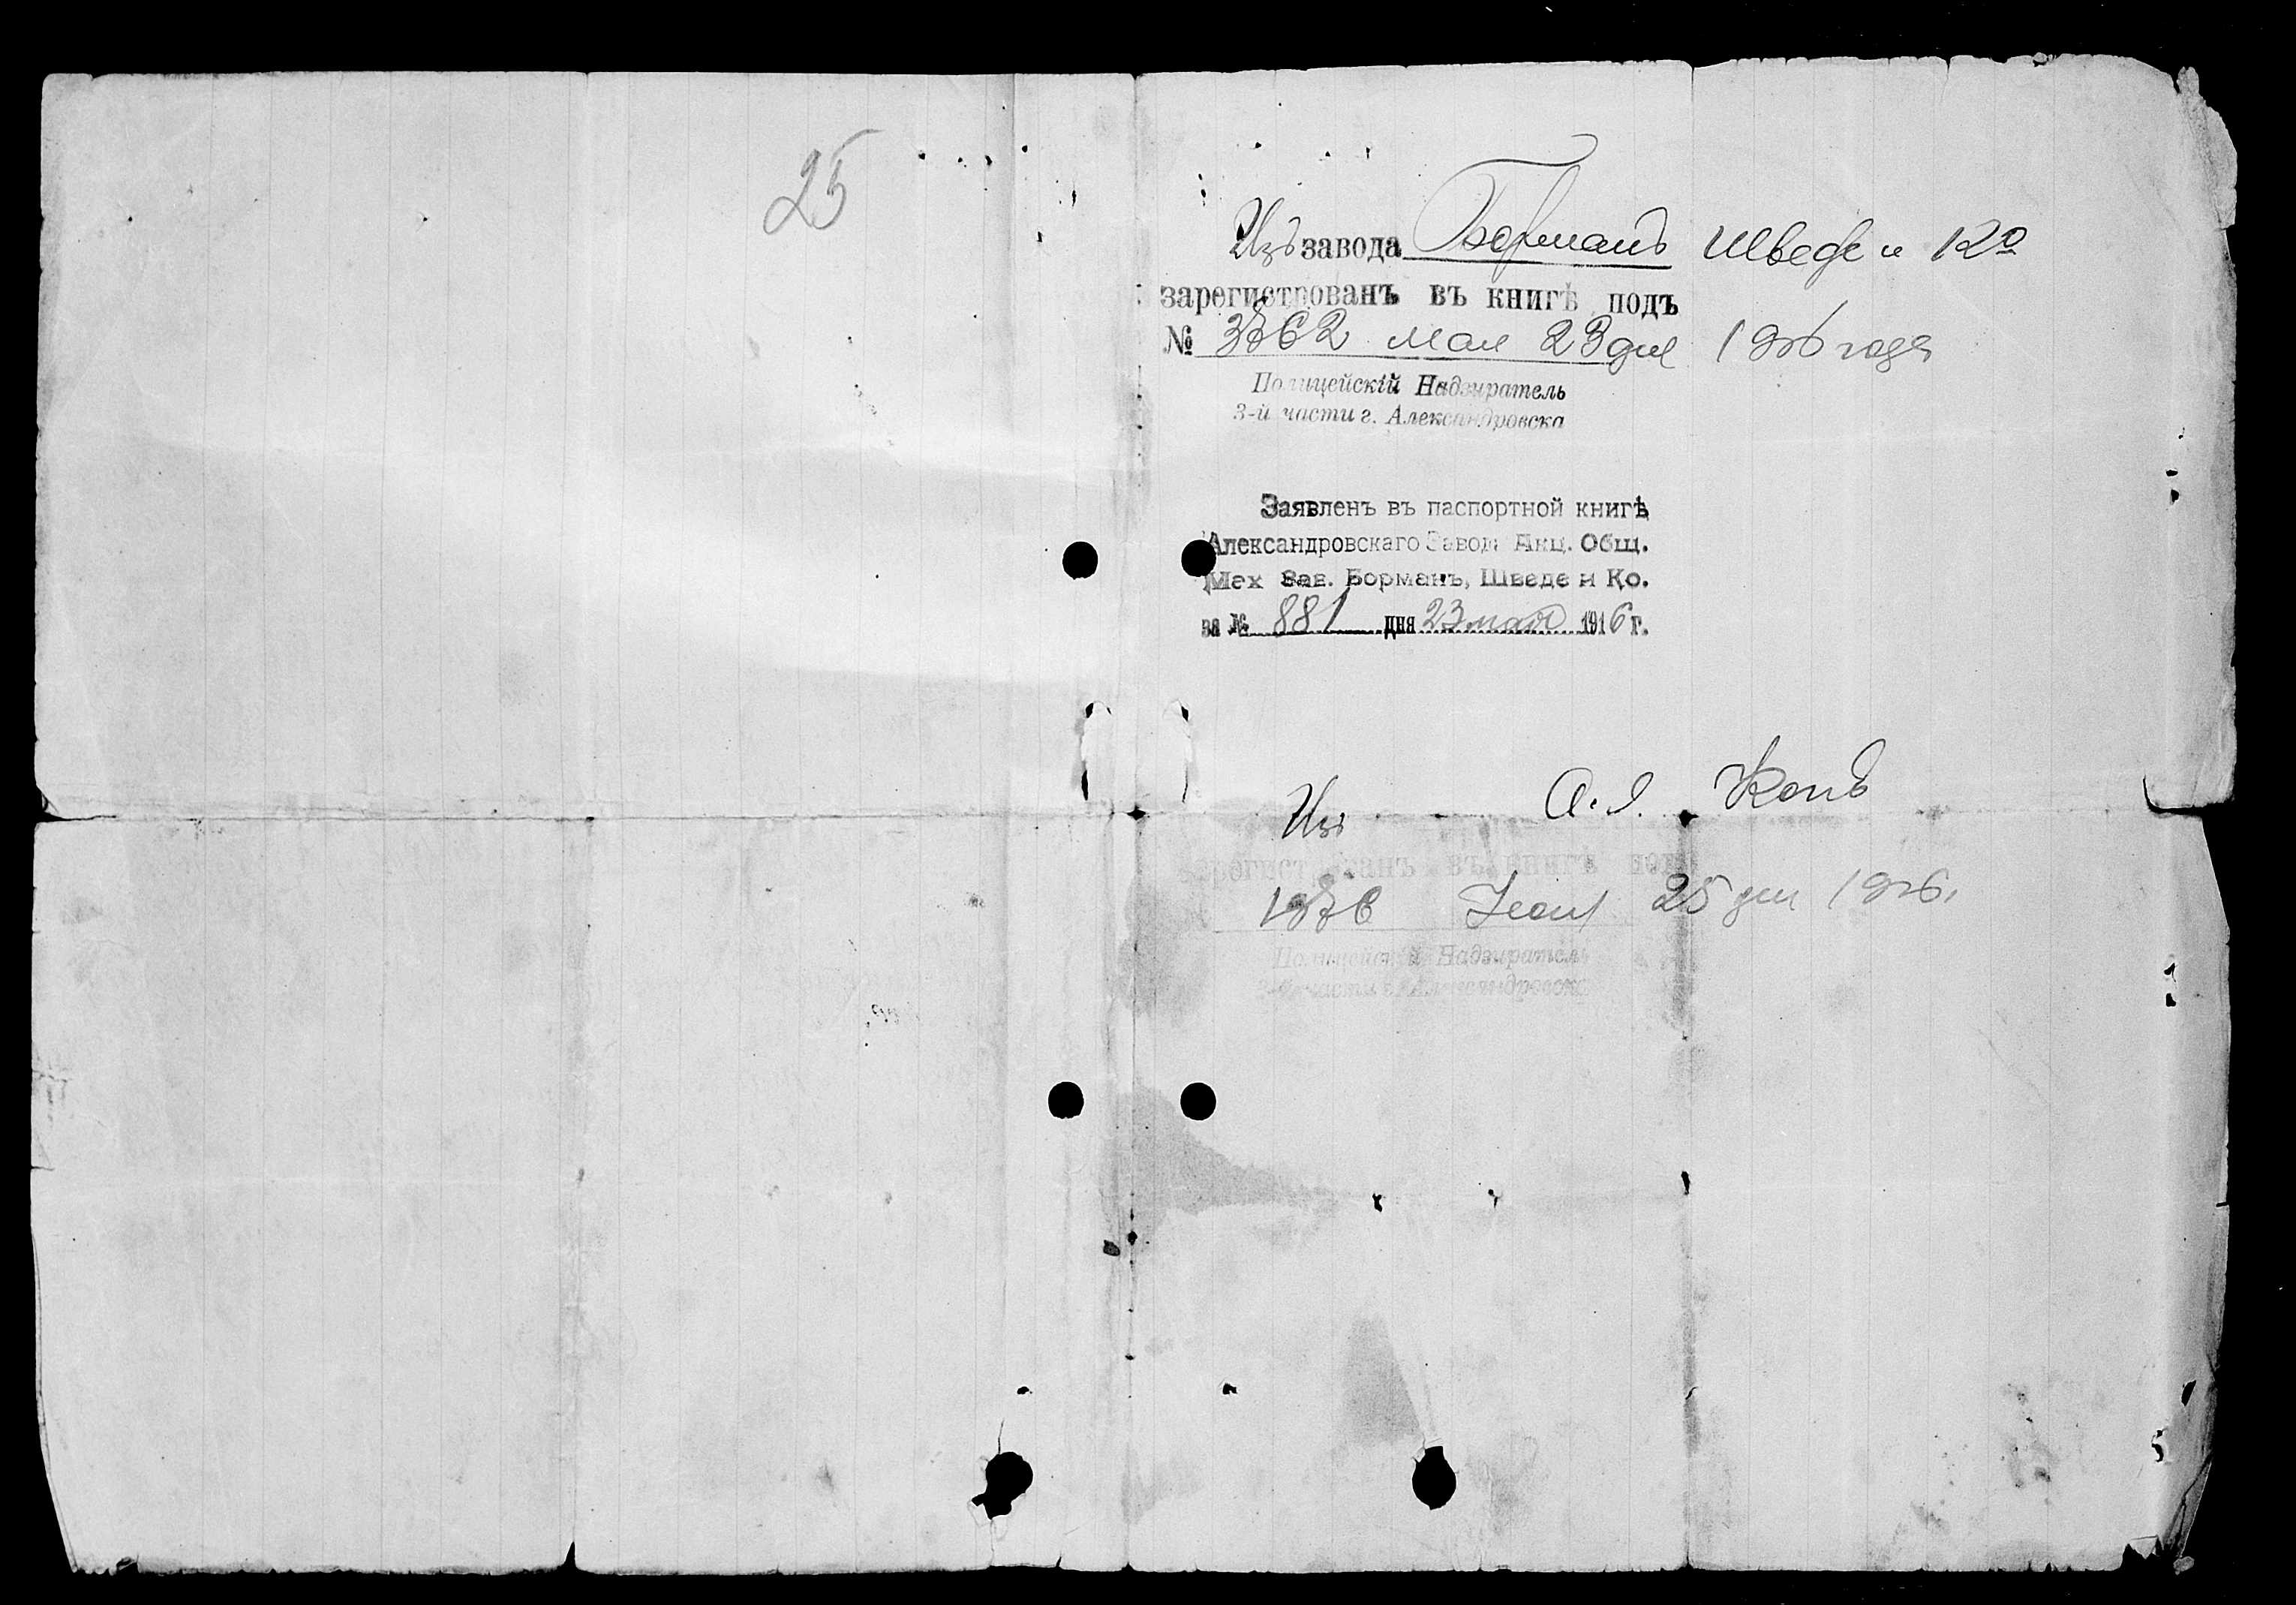 25
Изъ завода Борманъ Шведе и Ко
зарегистрованъ въ книгѣ подъ
№ 3762 мая 23 дня 1916 года
Полицейскій Надзиратель
3-й части г. Александровска
Заявленъ въ паспортной книгѣ
Александровскаго Завода Акц. Общ.
Мех Зав. Борманъ, Шведе и Ко.
за № 881 дня 23 мая 1916 г.
Изъ А. Я. Копъ
зарегистрованъ въ книгѣ подъ
25 дня 1916
Полицейскій Надзиратель
3-й части г. Александровска